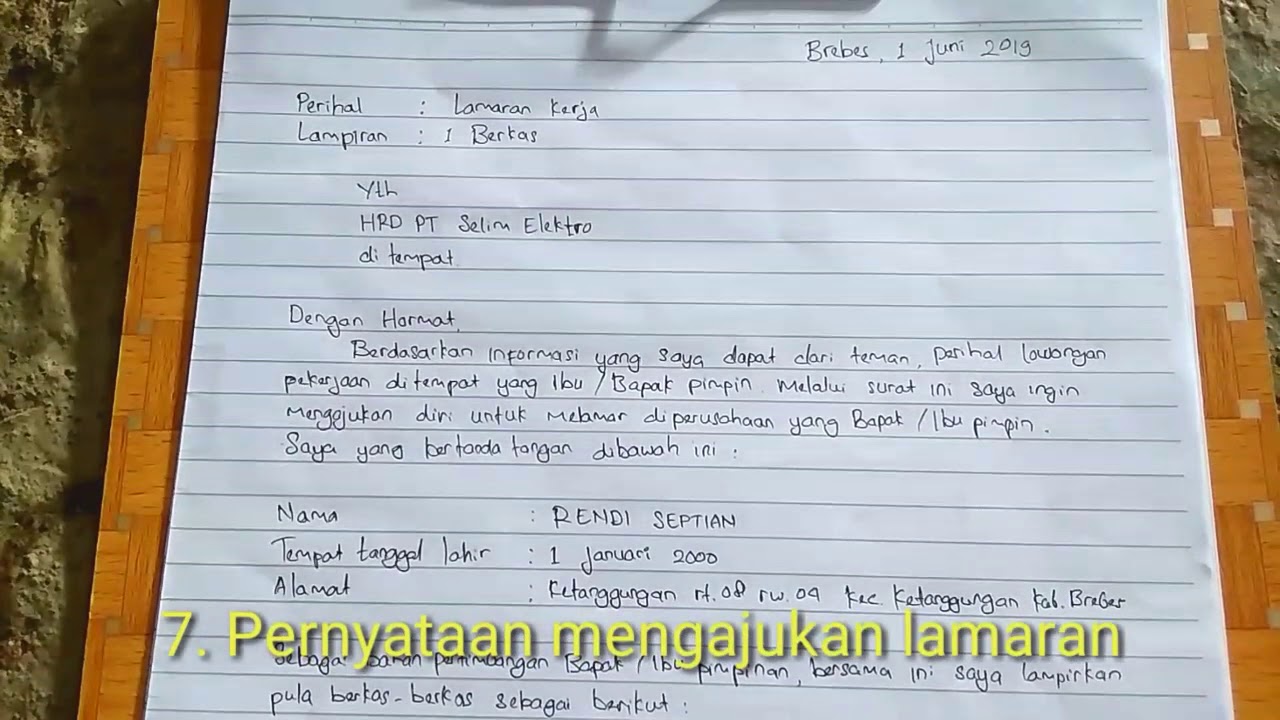 Brebes, 1 Juni 2019
Perihal : Lamaran Kerja
Lampiran : 1 Berkas
Yth
HRD PT Selim Elektro
di tempat.
Dengan Hormat,
Berdasarkan informasi yang saya dapat dari teman, perihal lowongan
pekerjaan ditempat yang Ibu / Bapak pimpin. Melalui surat ini saya ingin
menggjukan diri untuk melamar diperusahaan yang Bapak / Ibu pimpin.
Saya yang bertanda tangan dibawah ini :
Nama : RENDI SEPTIAN
Tempat tanggal lahir : 1 Januari 2000
Alamat : Ketanggungan rt.08 rw.04 kec Ketanggungan kab. Brebes
7. Pernyataan mengajukan lamaran
Sebagai bahan pertimbangan Bapak / Ibu pimpinan, bersama ini saya lampirkan
pula berkas-berkas sebagai berikut :